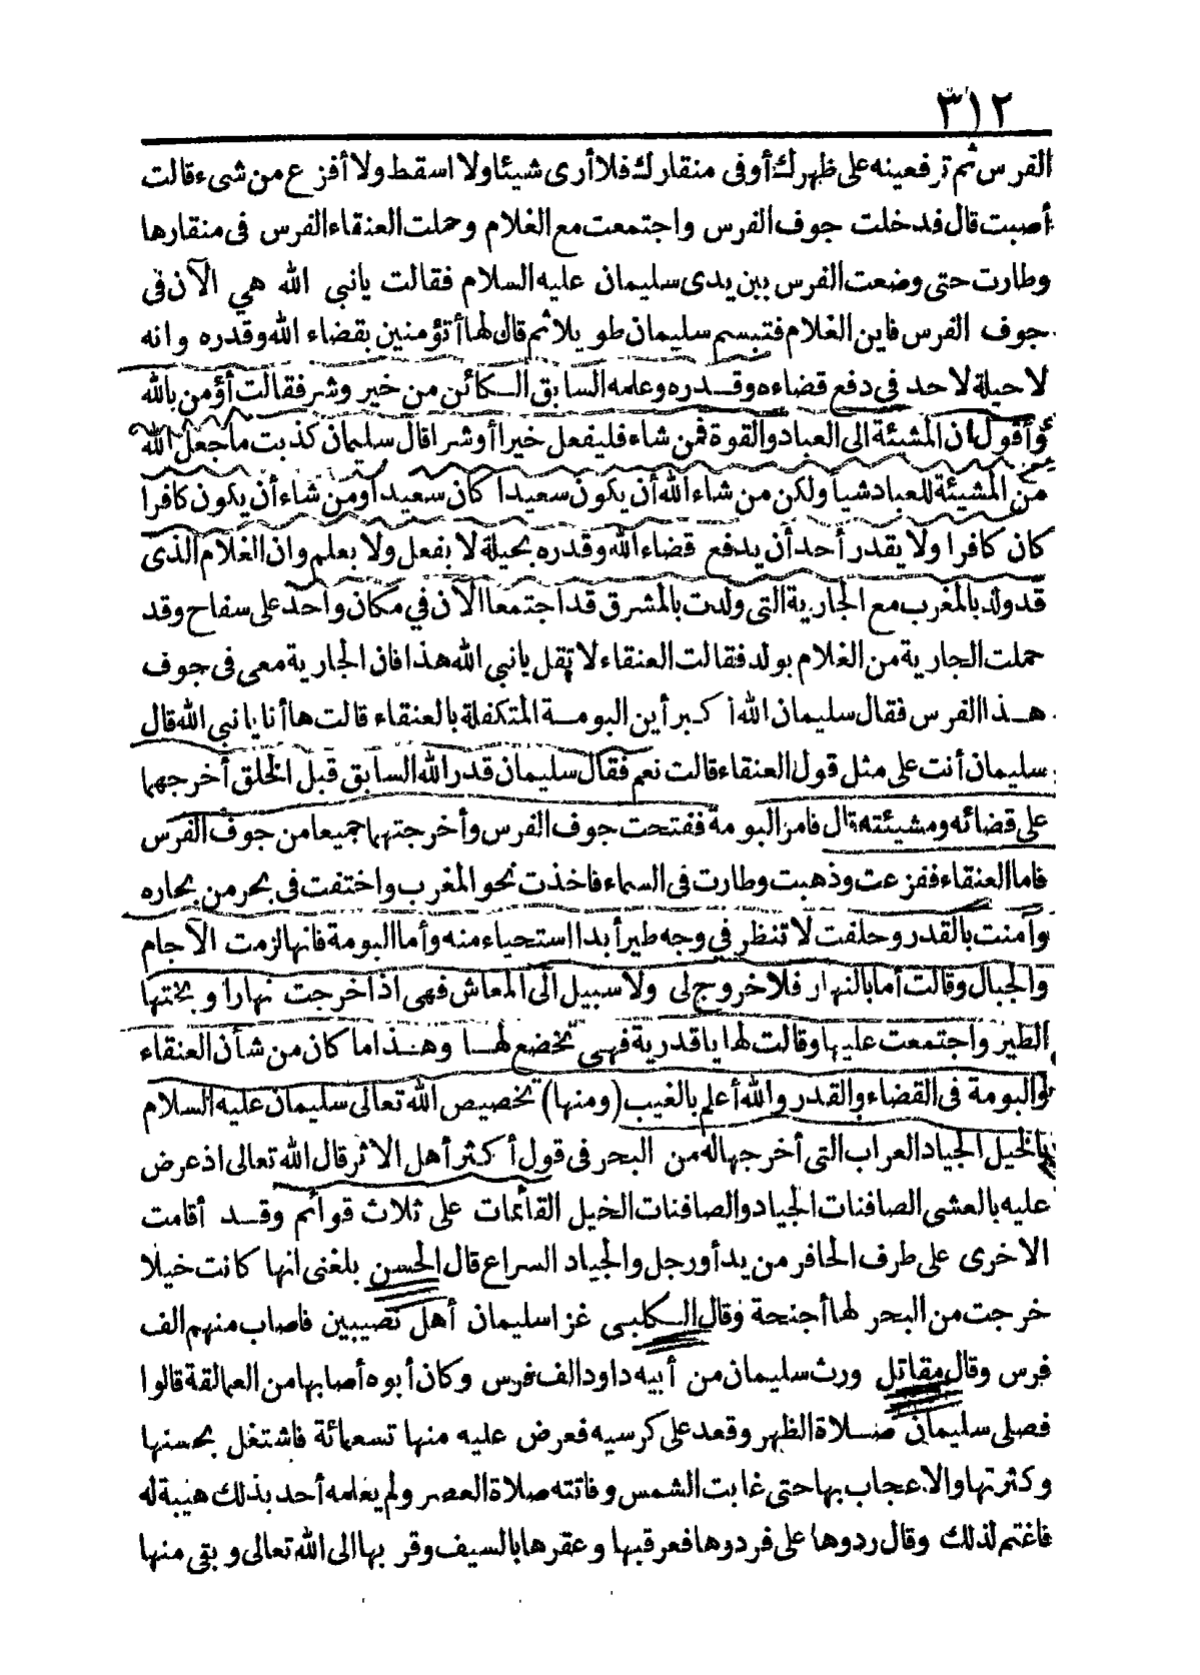 ٣١٢
الفرس ثم ترفعينه على ظهرك أو فى منقارك فلا أرى شيئا ولا اسقط ولا أفزع من شىء قالت
أصبت قال فدخلت جوف الفرس واجتمعت مع الغلام وحملت العنقاء الفرس فى منقارها
وطارت حتى وضعت الفرس بين يدى سليمان عليه السلام فقالت يانبي الله هي الآن فى
جوف الفرس فاين الغلام فتبسم سليمان طويلا ثم قال لها أتؤمنين بقضاء الله وقدره وانه
لا حيلة لاحد فى دفع قضاءه وقدره وعلمه السابق الكائن من خير وشر فقالت أؤمن بالله
وأقول ان المشيئة الى العباد والقوة فمن شاء فليفعل خيرا أو شرا قال سليمان كذبت ما جعل الله
من المشيئة للعباد شيأ ولكن من شاء الله أن يكون سعيدا كان سعيدا ومن شاء أن يكون كافرا
كان كافرا ولا يقدر أحد أن يدفع قضاء الله وقدره بحيلة لا بفعل ولا بعلم وان الغلام الذى
قد ولد بالمغرب مع الجارية التى ولدت بالمشرق قد اجتمعا الآن في مكان واحد على سفاح وقد
حملت الجارية من الغلام بولد فقالت العنقاء لا تقل يانبي الله هذا فان الجارية معى فى جوف
هذا الفرس فقال سليمان الله أكبر أين البومة المتكفلة بالعنقاء قالت ها أنا يا نبي الله قال
سليمان أنت على مثل قول العنقاء قالت نعم فقال سليمان قدر الله السابق قبل الخلق أخرجهما
على قضائه ومشيئته قال فامر البومة ففتحت جوف الفرس وأخرجتهما جميعا من جوف الفرس
فاما العنقاء ففزعت وذهبت وطارت فى السماء فاخذت نحو المغرب واختفت فى بحر من بحاره
وآمنت بالقدر وحلفت لا تنظر في وجه طير أبدا استحياء منه وأما البومة فانها لزمت الآجام
والجبال وقالت أما بالنهار فلا خروج لى ولا سبيل الى المعاش فهى اذا خرجت نهارا وبختها
الطير واجتمعت عليها وقالت لها يا قدرية فهى تخضع لها وهذا ما كان من شأن العنقاء
والبومة فى القضاء والقدر والله أعلم بالغيب (ومنها) تخصيص الله تعالى سليمان عليه السلام
بالخيل الجياد العراب التى أخرجها له من البحر فى قول أكثر أهل الاثر قال الله تعالى اذ عرض
عليه بالعشى الصافنات الجياد والصافنات الخيل القائمات على ثلاث قوائم وقد أقامت
الاخرى على طرف الحافر من يد أو رجل والجياد السراع قال الحسن بلغنى انها كانت خيلا
خرجت من البحر لها أجنحة وقال الكلبى غزا سليمان أهل نصيبين فاصاب منهم الف
فرس وقال مقاتل ورث سليمان من أبيه داود الف فرس وكان أبوه أصابها من العمالقة قالوا
فصلى سليمان صلاة الظهر وقعد على كرسيه فعرض عليه منها تسعمائة فاشتغل بحسنها
وكثرتها والاعجاب بها حتى غابت الشمس وفاتته صلاة العصر ولم يعلمه أحد بذلك هيبة له
فاغتم لذلك وقال ردوها على فردوها فعرقبها وعقرها بالسيف وقرب بها الى الله تعالى وبقى منها